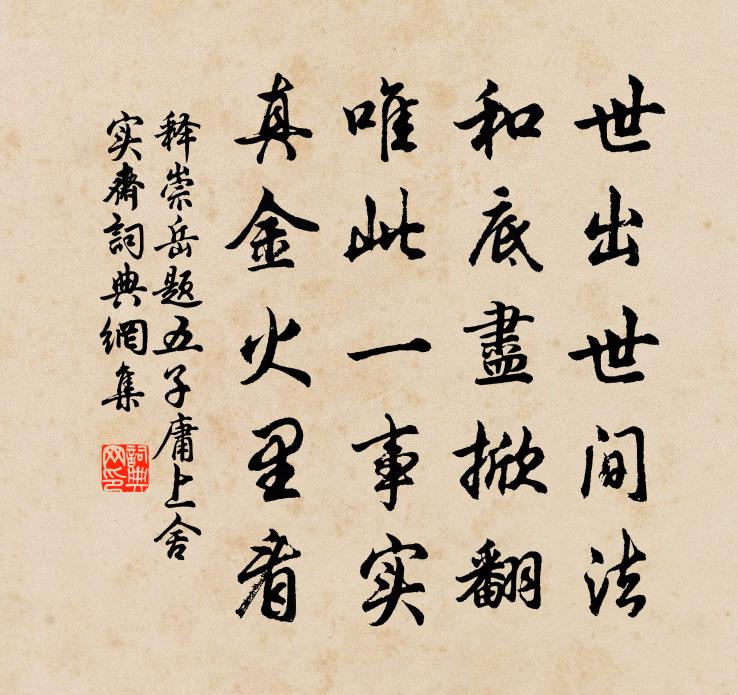 世出世间法
和底盡掀翻
唯此一事实
真金火里看
释崇岳题五子庸上舍
实斋詞典網集
詞典网印